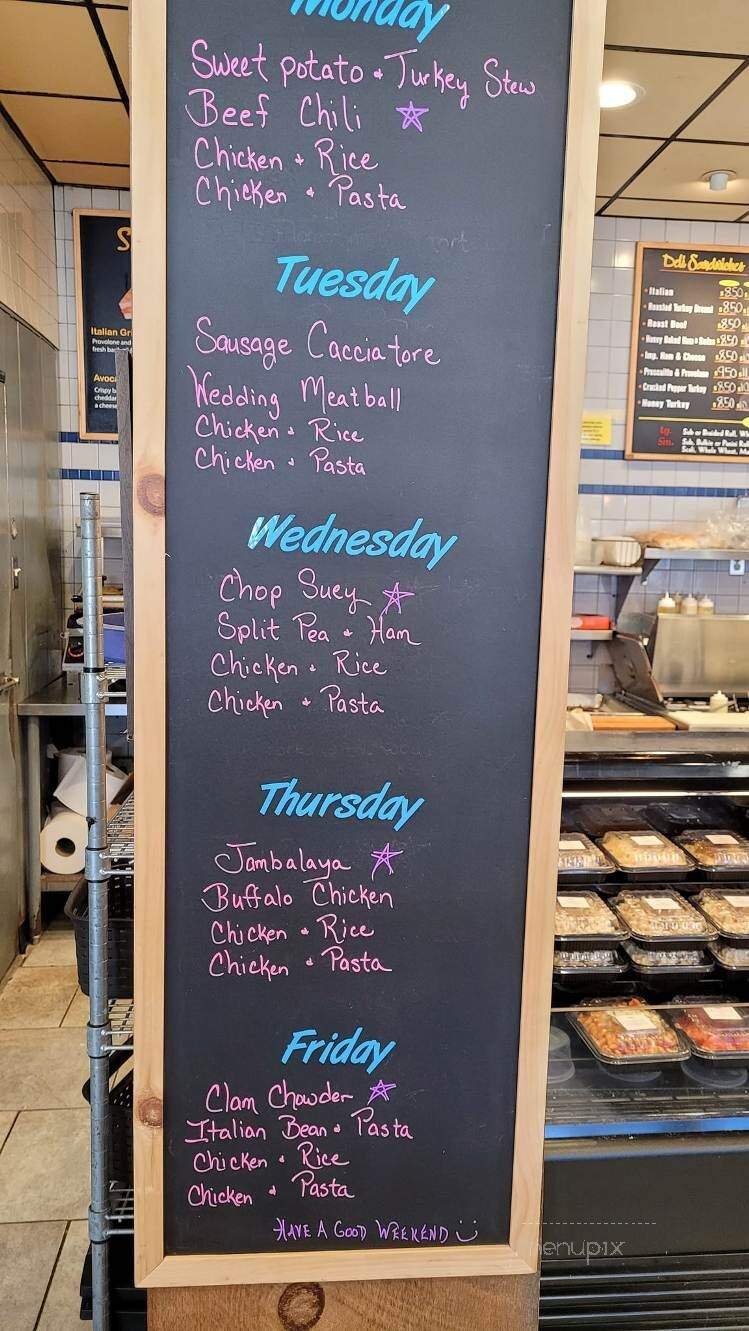 Monday
Sweet potato + Turkey Stew
Beef Chili ☆
Chicken + Rice
Chicken + Pasta
Tuesday
Sausage Cacciatore
Wedding Meatball
Chicken + Rice
Chicken + Pasta
Wednesday
Chop Suey ☆
Split Pea + Ham
Chicken + Rice
Chicken + Pasta
Thursday
Jambalaya ☆
Buffalo Chicken
Chicken + Rice
Chicken + Pasta
Friday
Clam Chowder ☆
Italian Bean + Pasta
Chicken + Rice
Chicken + Pasta
HAVE A GOOD WEEKEND
Italian
Provolone and
Deli Sandwiches
Italian 8.50
Roasted Turkey Breast 8.50
Roast Beef 8.50
Imp. Ham & Cheese 8.50
Prosciutto & Provolone 9.50
Cracked Pepper Turkey 8.50
Honey Turkey 8.50
Lg.
Sm.
menupix